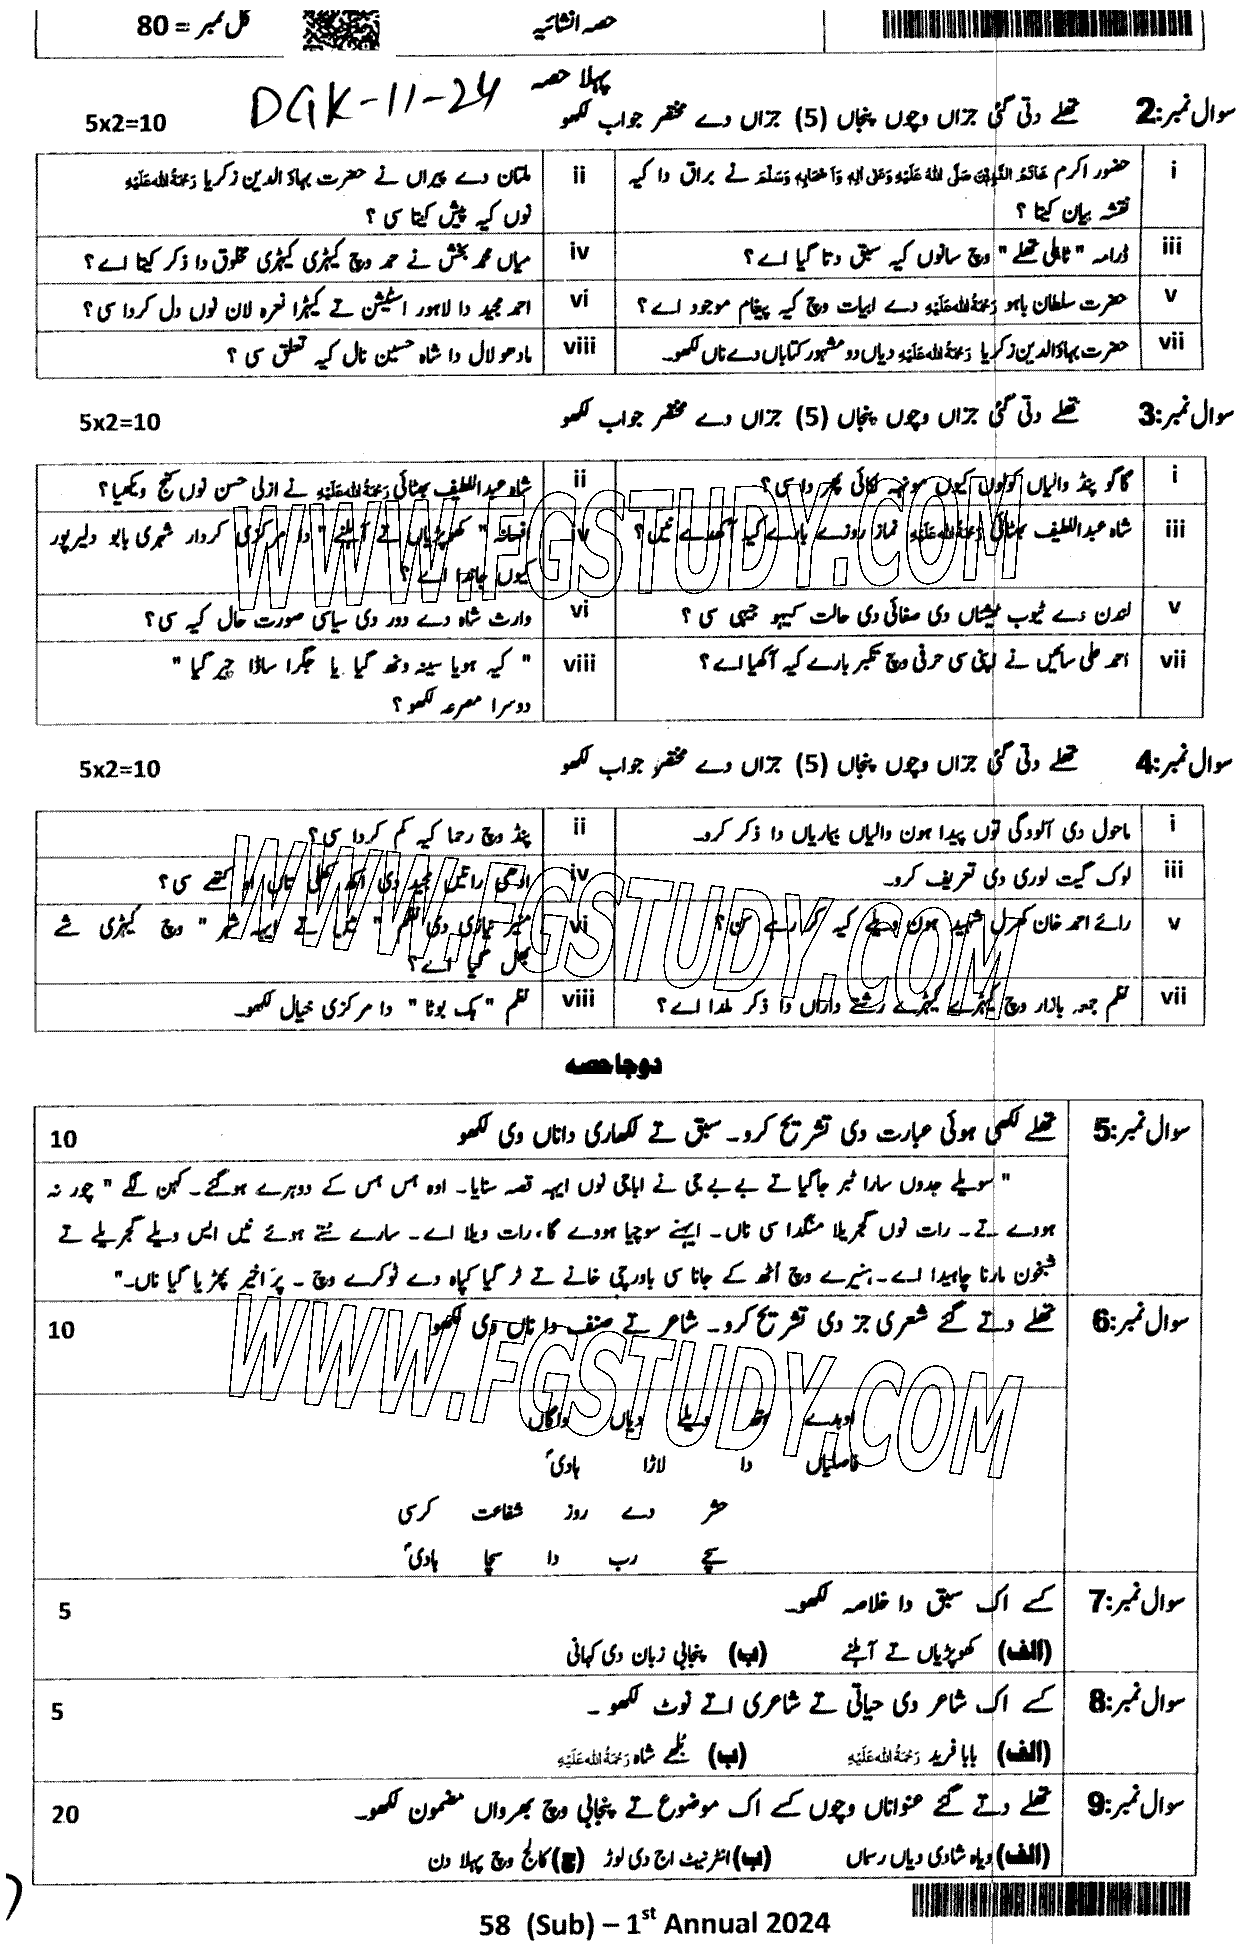 حصہ انشائیہ
کل نمبر = 80
پہلا حصہ
DGK-11-24
سوال نمبر:2 تھلے دتی گئی جزاں وچوں پنجاں (5) جزاں دے مختصر جواب لکھو
5x2=10
i حضور اکرم خَاتَمُ النَّبِیّٖنَ صَلَّی اللہُ عَلَیْہِ وَعَلٰی اٰلِہٖ وَاَصْحَابِہٖ وَسَلَّمَ نے براق دا کیہ
نقشہ بیان کیتا ؟
ii ملتان دے پیراں نے حضرت بہاؤ الدین زکریا رَحْمَۃُاللہِ عَلَیْہِ
نوں کیہ پیش کیتا سی ؟
iii ڈرامہ " ٹاہلی تھلے " وچ سانوں کیہ سبق دتا گیا اے ؟
iv میاں محمد بخش نے حمد وچ کیہڑی کیہڑی مخلوق دا ذکر کیتا اے ؟
v حضرت سلطان باہو رَحْمَۃُاللہِ عَلَیْہِ دے ابیات وچ کیہ پیغام موجود اے ؟
vi احمد مجید دا لاہور اسٹیشن تے کیہڑا نعرہ لان نوں دل کردا سی ؟
vii حضرت بہاؤالدین زکریا رَحْمَۃُاللہِ عَلَیْہِ دیاں دو مشہور کتاباں دے ناں لکھو۔
viii مادھو لال دا شاہ حسین نال کیہ تعلق سی ؟
سوال نمبر:3 تھلے دتی گئی جزاں وچوں پنجاں (5) جزاں دے مختصر جواب لکھو
5x2=10
i گاگو پنڈ والیاں کولوں کیوں مونہہ لکائی پھر دا سی ؟
ii شاہ عبداللطیف بھٹائی رَحْمَۃُاللہِ عَلَیْہِ نے ازلی حسن نوں کنج ویکھیا ؟
iii شاہ عبداللطیف بھٹائی رَحْمَۃُاللہِ عَلَیْہِ نماز روزے بارے کیہ آکھدے نیں ؟
iv افسانہ " کھوپڑیاں تے آہلنے " دا مرکزی کردار شہری بابو دلیرپور
کیوں جاندا اے ؟
v لندن دے ٹیوب سٹیشناں دی صفائی دی حالت کیہو جیہی سی ؟
vi وارث شاہ دے دور دی سیاسی صورت حال کیہ سی ؟
vii احمد علی سائیں نے اپنی سی حرفی وچ تکبر بارے کیہ آکھیا اے ؟
viii " کیہ ہویا سینہ ونھ گیا یا جگرا ساڈا چیر گیا "
دوسرا مصرعہ لکھو ؟
سوال نمبر:4 تھلے دتی گئی جزاں وچوں پنجاں (5) جزاں دے مختصر جواب لکھو
5x2=10
i ماحول دی آلودگی توں پیدا ہون والیاں بیماریاں دا ذکر کرو۔
ii پنڈ وچ رحما کیہ کم کردا سی ؟
iii لوک گیت لوری دی تعریف کرو۔
iv ادھی راتیں مجید دی اکھ کھلی تاں او کتھے سی ؟
v رائے احمد خان کھرل شہید ہون ویلے کیہ کر رہے سن ؟
vi منیر نیازی دی نظم " میں تے ایہہ شہر " وچ کیہڑی شے
بھل گیا اے ؟
vii نظم جمعہ بازار وچ کیہڑے کیہڑے رشتے داراں دا ذکر ملدا اے ؟
viii نظم " ہک بوٹا " دا مرکزی خیال لکھو۔
دوجا حصہ
سوال نمبر:5 تھلے لکھی ہوئی عبارت دی تشریح کرو۔ سبق تے لکھاری داناں وی لکھو
10
" سویلے جدوں سارا ٹبر جاگیا تے بے بے جی نے اباجی نوں ایہہ قصہ سنایا۔ اوہ ہس ہس کے دوہرے ہوگئے۔ کہن لگے " چور نہ
ہووے تے۔ رات نوں گجریلا منگدا سی ناں۔ ایہنے سوچیا ہووے گا، رات ویلا اے۔ سارے ستے ہوئے نیں ایس ویلے گجریلے تے
شبخون مارنا چاہیدا اے۔ ہنیرے وچ اُٹھ کے جانا سی باورچی خانے تے ٹر گیا کپاہ دے ٹوکرے وچ ۔ پرَ اخیر پھڑیا گیا ناں۔"
سوال نمبر:6 تھلے دتے گئے شعری جز دی تشریح کرو۔ شاعر تے صنف دا ناں وی لکھو
10
اوہدے ہتھ ویلے دیاں واگاں
فاصلیاں دا لاڑا ہادیؐ
حشر دے روز شفاعت کرسی
سچے رب دا سچا ہادیؐ
سوال نمبر:7 کسے اک سبق دا خلاصہ لکھو۔
5
(الف) کھوپڑیاں تے آہلنے (ب) پنجابی زبان دی کہانی
سوال نمبر:8 کسے اک شاعر دی حیاتی تے شاعری اتے نوٹ لکھو ۔
5
(الف) بابا فرید رَحْمَۃُاللہِ عَلَیْہِ (ب) بُلھے شاہ رَحْمَۃُاللہِ عَلَیْہِ
سوال نمبر:9 تھلے دتے گئے عنواناں وچوں کسے اک موضوع تے پنجابی وچ بھرواں مضمون لکھو۔
20
(الف) ویاہ شادی دیاں رسماں (ب) انٹرنیٹ اج دی لوڑ (ج) کالج وچ پہلا دن
58 (Sub) – 1st Annual 2024
WWW.FGSTUDY.COM
WWW.FGSTUDY.COM
WWW.FGSTUDY.COM